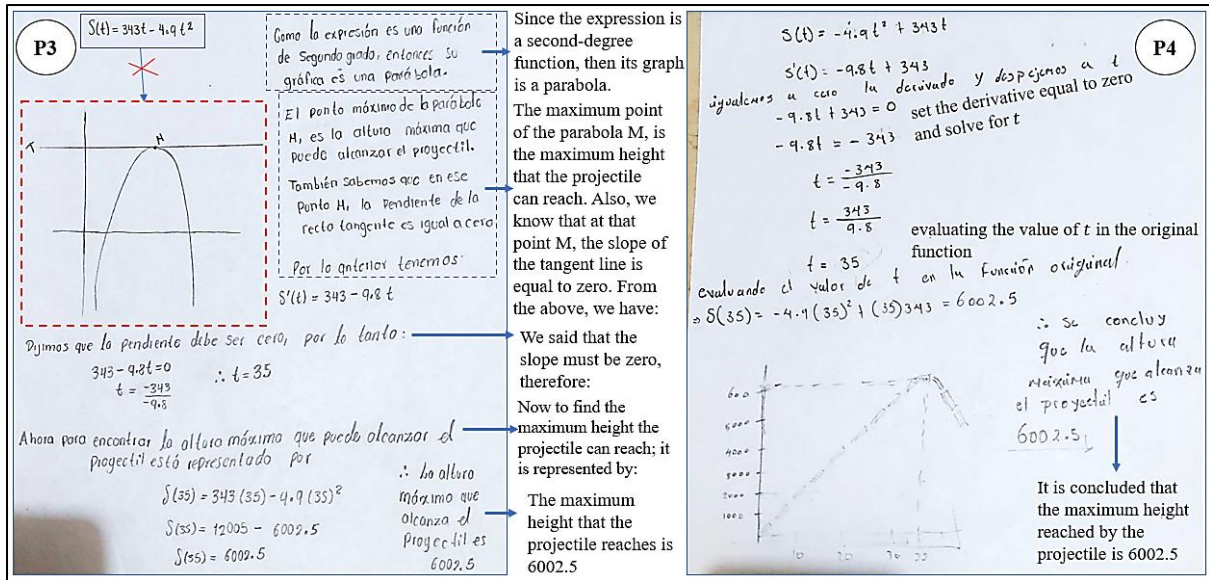 P3
S(t) = 343t - 4.9 t²
Como la expresión es una función
de segundo grado, entonces su
gráfica es una parábola.
T
M
El punto máximo de la parábola
M, es la altura máxima que
puede alcanzar el proyectil.
También sabemos que en ese
punto M, la pendiente de la
recta tangente es igual a cero
Por lo anterior tenemos:
S'(t) = 343 - 9.8 t
Dijimos que la pendiente debe ser cero, por lo tanto:
343 - 9.8t = 0
t = -343/-9.8 ∴ t = 35
Ahora para encontrar la altura máxima que puede alcanzar el
proyectil está representado por
S(35) = 343 (35) - 4.9 (35)²
S(35) = 12005 - 6002.5
S(35) = 6002.5
∴ La altura
máxima que
alcanza el
Proyectil es
6002.5
Since the expression is
a second-degree
function, then its graph
is a parabola.
The maximum point
of the parabola M, is
the maximum height
that the projectile
can reach. Also, we
know that at that
point M, the slope of
the tangent line is
equal to zero. From
the above, we have:
We said that the
slope must be zero,
therefore:
Now to find the
maximum height the
projectile can reach; it
is represented by:
The maximum
height that the
projectile reaches is
6002.5
P4
S(t) = -4.9t² + 343t
S'(t) = -9.8t + 343
igualemos a cero la derivada y despejemos a t
-9.8t + 343 = 0
set the derivative equal to zero
and solve for t
-9.8t = -343
t = -343/-9.8
t = 343/9.8
t = 35
evaluating the value of t in the original
function
evaluando el valor de t en la función original.
S(35) = -4.9 (35)² + (35)343 = 6002.5
∴ Se concluy
que la altura
máxima que alcanza
el proyectil es
6002.5
600
5000
4000
3000
2000
1000
10 20 30 35
It is concluded that
the maximum height
reached by the
projectile is 6002.5